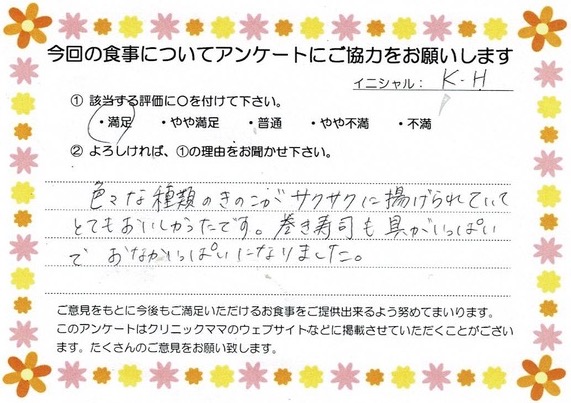 今回の食事についてアンケートにご協力をお願いします
イニシャル： K・H
① 該当する評価に〇を付けて下さい。
・満足 ・やや満足 ・普通 ・やや不満 ・不満
② よろしければ、①の理由をお聞かせ下さい。
色々な種類のきのこがサクサクに揚げられていて
とてもおいしかったです。巻き寿司も具がいっぱい
で おなかいっぱいになりました。
ご意見をもとに今後もご満足いただけるお食事をご提供出来るよう努めてまいります。
このアンケートはクリニックママのウェブサイトなどに掲載させていただくことがござい
ます。たくさんのご意見をお願い致します。